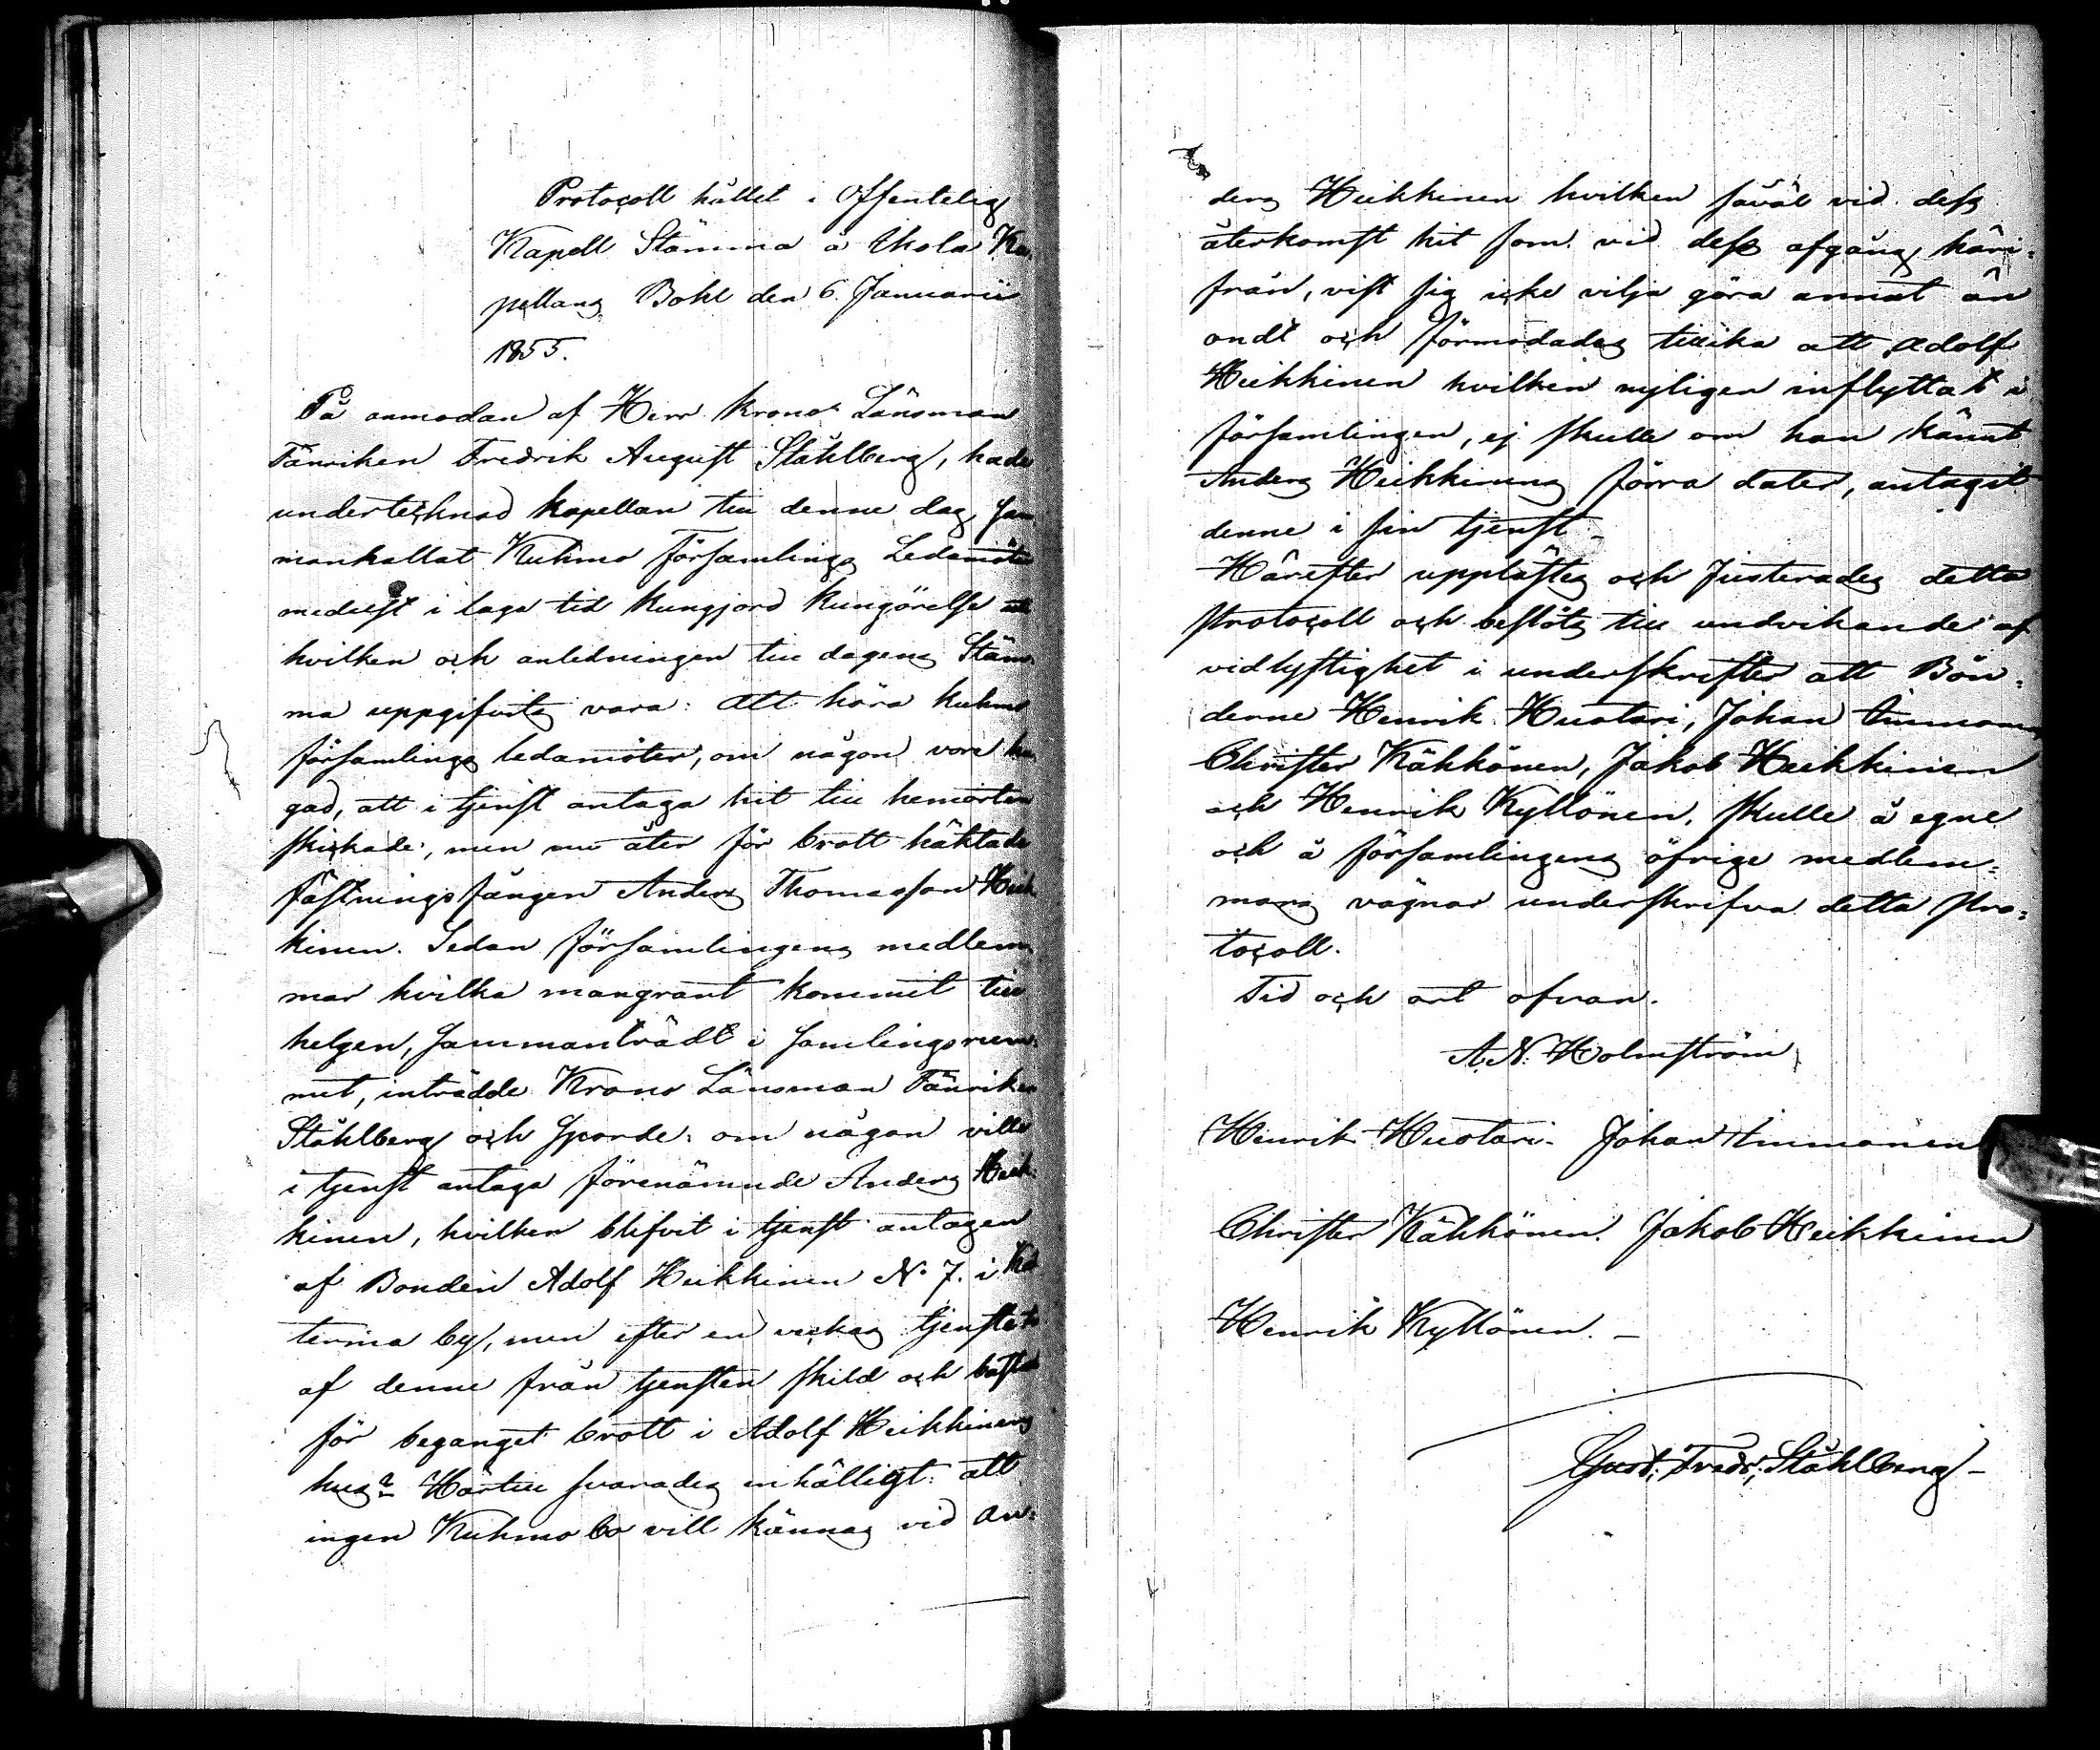 Protocoll hållet i Offentelig
Kapell Stämma å Ukola Ka,
pellans Bohl den 6. Januarii
1855.
På anmodan af Herr Krono Länsman
Fänriken Fredrik August Ståhlberg, hade
undertecknad kapellan till denne dag sam
mankallat Kuhmo Församlings Ledamöter
medelst i laga tid kungjord kungörelse
hvilken och anledningen till dagens Stäm
ma uppgifvits vara: att höra Kuhmo
församlings ledamöter, om någon vore hu
gad, att i tjenst antaga hit till hemorten
skickade, men nu åter för brott häktade
fästningsfången Anders Thomasson Heik
kinen. Sedan församlingens medlem
mar hvilka mangrant kommit till
helgen, sammanträdt i samlingsrum
met, inträdde Krono Länsman Fänriken
Ståhlberg och Sporde: om någon ville
i tjenst antaga förenämnde Anders Heik
kinen, hvilken blifvit i tjenst antagen
af Bonden Adolf Heikkinen No 7. i
termä by, men efter en veckas tjenste
af denne från tjensten skild och
för beganget brott i Adolf Heikkinens
hus? Härtill svarades enhälligt: att
ingen Kuhmo bo vill kännas vid An=
ders Heikkinen hvilken såväl vid dess
återkomst hit som vid dess afgång häri=
från, vist sig icke vilja göra annat än
ondt och förmodades tillika att Adolf
Heikkinen hvilken nyligen inflyttat i
församlingen, ej skulle om han kännt
Anders Heikkinens förra dater, antagit
denne i sin tjenst.
Härefter upplästes och Justerades detta
Protocoll och beslöts till undvikande af
vidlyftighet i underskrifter att Bön=
derne Henrik Huotari, Johan Timmonen
Christer Kähkönen, Jakob Heikkinen
och Henrik Kyllönen, skulle å egne
och å församlingens öfrige medlem=
mars vägnar underskrifva detta Pro=
tocoll.
Tid och ort ofvan.
A. N. Holmström
Henrik Huotari. Johan Timmonen
Christer Kähkönen. Jakob Heikkinen
Henrik Kyllönen. _
Gust: Fredr: Ståhlberg -